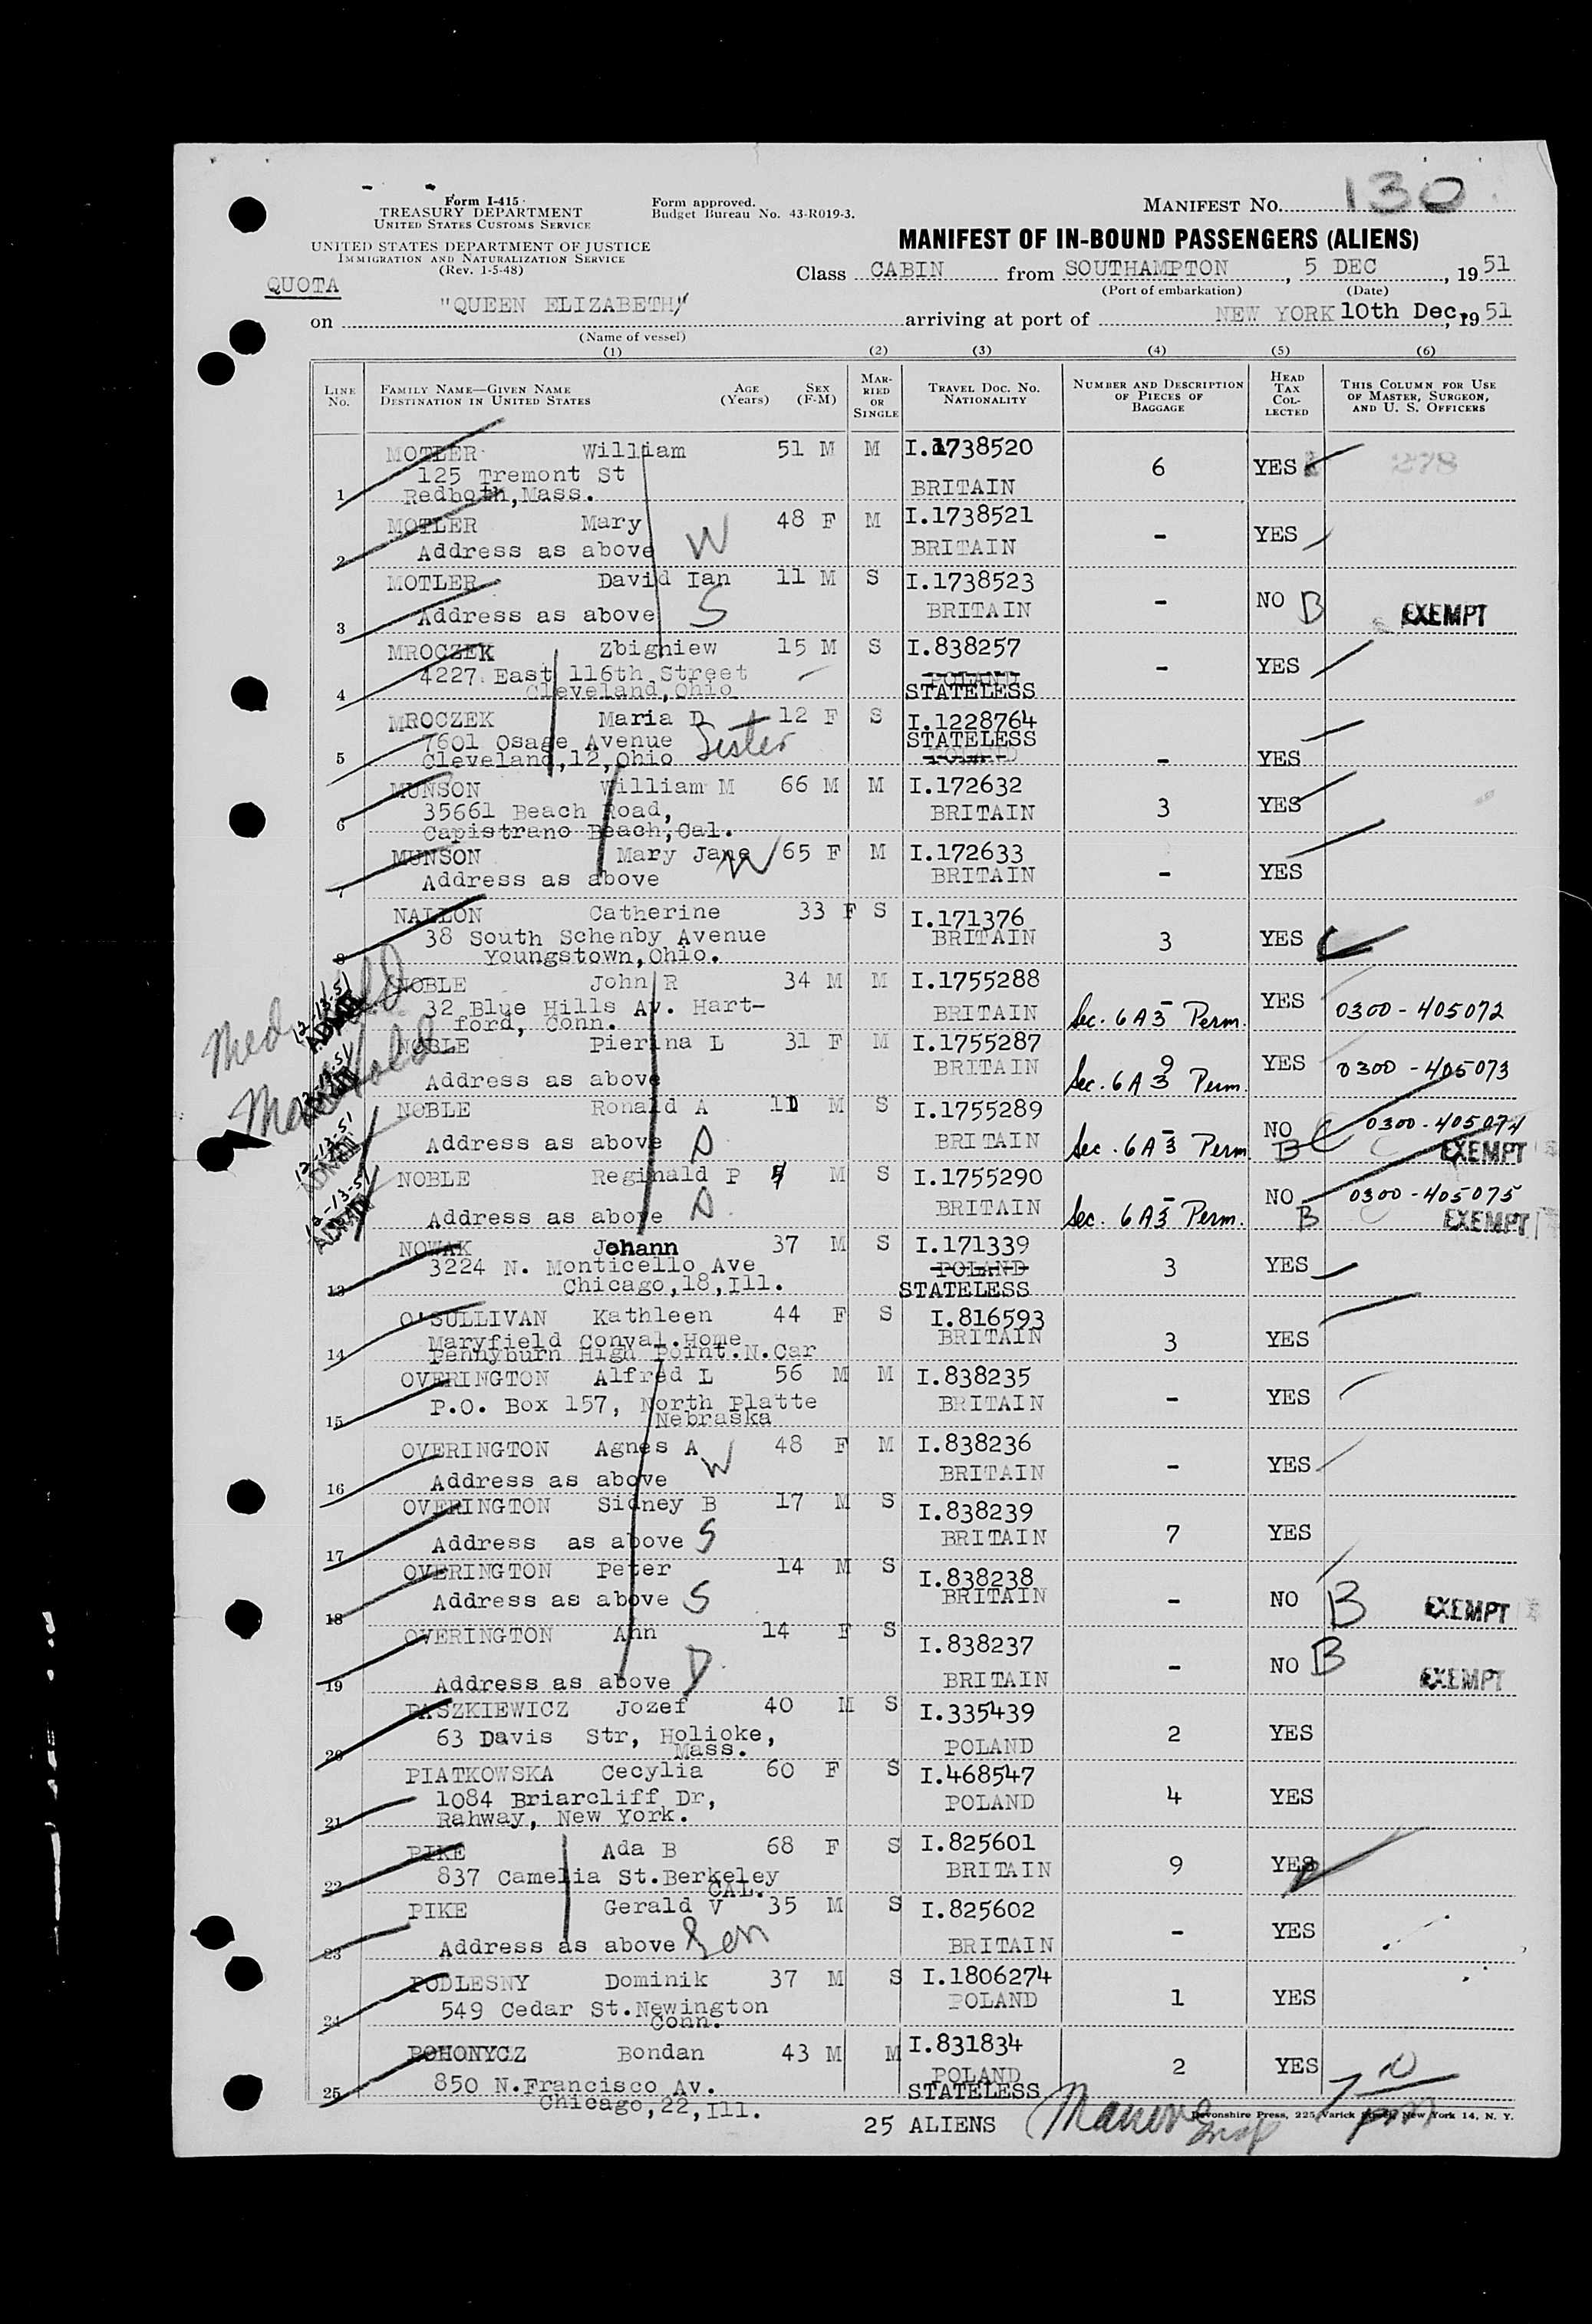 Form I-415
TREASURY DEPARTMENT
UNITED STATES CUSTOMS SERVICE
UNITED STATES DEPARTMENT OF JUSTICE
IMMIGRATION AND NATURALIZATION SERVICE
(Rev. 1-5-48)
Form approved.
Budget Bureau No. 43-R019-3.
MANIFEST NO. 130
MANIFEST OF IN-BOUND PASSENGERS (ALIENS)
Class CABIN from SOUTHAMPTON, 5 DEC, 1951
(Port of embarkation) (Date)
QUOTA
on "QUEEN ELIZABETH" arriving at port of NEW YORK 10th Dec, 1951
(Name of vessel)
(1) (2) (3) (4) (5) (6)
LINE NO. FAMILY NAME—GIVEN NAME DESTINATION IN UNITED STATES AGE (Years) SEX (F-M) MARRIED OR SINGLE TRAVEL DOC. NO. NATIONALITY NUMBER AND DESCRIPTION OF PIECES OF BAGGAGE HEAD TAX COLLECTED THIS COLUMN FOR USE OF MASTER, SURGEON, AND U. S. OFFICERS
MOTLER William 51 M M I.1738520 6 YES 278
125 Tremont St BRITAIN
1 Redboth, Mass.
MOTLER Mary 48 F M I.1738521 - YES
2 Address as above W BRITAIN
MOTLER David Ian 11 M S I.1738523 - NO B EXEMPT
3 Address as above S BRITAIN
MROCZEK Zbigniew 15 M S I.838257 - YES
4227 East 116th Street POLAND
4 Cleveland, Ohio STATELESS
MROCZEK Maria D 12 F S I.1228764
7601 Osage Avenue Sister STATELESS
5 Cleveland,12,Ohio POLAND - YES
MUNSON William M 66 M M I.172632
35661 Beach Road, BRITAIN 3 YES
6 Capistrano Beach,Cal.
MUNSON Mary Jane W 65 F M I.172633
7 Address as above BRITAIN - YES
NALLON Catherine 33 F S I.171376
38 South Schenby Avenue BRITAIN 3 YES
8 Youngstown,Ohio.
NOBLE John R 34 M M I.1755288 - YES 0300-405072
32 Blue Hills Av. Hart- BRITAIN Sec. 6A3 Perm.
ford, Conn.
Med. Hold
12-13-51
ADMITTED
NOBLE Pierina L 31 F M I.1755287 9 YES 0300-405073
Address as above BRITAIN Sec. 6A3 Perm.
Med Hold
12-13-51
ADMITTED
NOBLE Ronald A 11 M S I.1755289 - NO B 0300-405074
Address as above D BRITAIN Sec. 6A3 Perm EXEMPT
12-13-51
ADMITTED
NOBLE Reginald P M S I.1755290 - NO B 0300-405075
Address as above D. BRITAIN Sec. 6A3 Perm. EXEMPT
12-13-51
ADMITTED
NOWAK Johann 37 M S I.171339
3224 N. Monticello Ave POLAND 3 YES
13 Chicago,18,Ill. STATELESS
O'SULLIVAN Kathleen 44 F S I.816593
Maryfield Conval.Home BRITAIN 3 YES
14 Pennyburn High Point.N.Car
OVERINGTON Alfred L 56 M M I.838235
P.O. Box 157, North Platte BRITAIN - YES
15 Nebraska
OVERINGTON Agnes A 48 F M I.838236
16 Address as above W BRITAIN - YES
OVERINGTON Sidney B 17 M S I.838239
17 Address as above S BRITAIN 7 YES
OVERINGTON Peter 14 M S I.838238
18 Address as above S BRITAIN - NO B EXEMPT
OVERINGTON Ann 14 F S I.838237 - NO B
19 Address as above D. BRITAIN EXEMPT
PASZKIEWICZ Jozef 40 M S I.335439
63 Davis Str, Holioke, POLAND 2 YES
20 Mass.
PIATKOWSKA Cecylia 60 F S I.468547
1084 Briarcliff Dr, POLAND 4 YES
21 Rahway, New York.
PIKE Ada B 68 F S I.825601
837 Camelia St.Berkeley BRITAIN 9 YES
22 CAL.
PIKE Gerald V 35 M S I.825602 - YES
23 Address as above Son BRITAIN
PODLESNY Dominik 37 M S I.1806274
549 Cedar St.Newington POLAND 1 YES
24 Conn.
POHONYCZ Bondan 43 M M I.831834
850 N.Francisco Av. POLAND 2 YES
25 Chicago,22,Ill. STATELESS
25 ALIENS
Devonshire Press, 225 Varick Street, New York 14, N. Y.